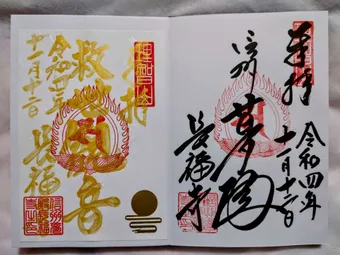 奉拝
令和四年
十一月十二日
信州
夢殿
長福寺
拝
救世観音
令和四年
十一月十二日
長福